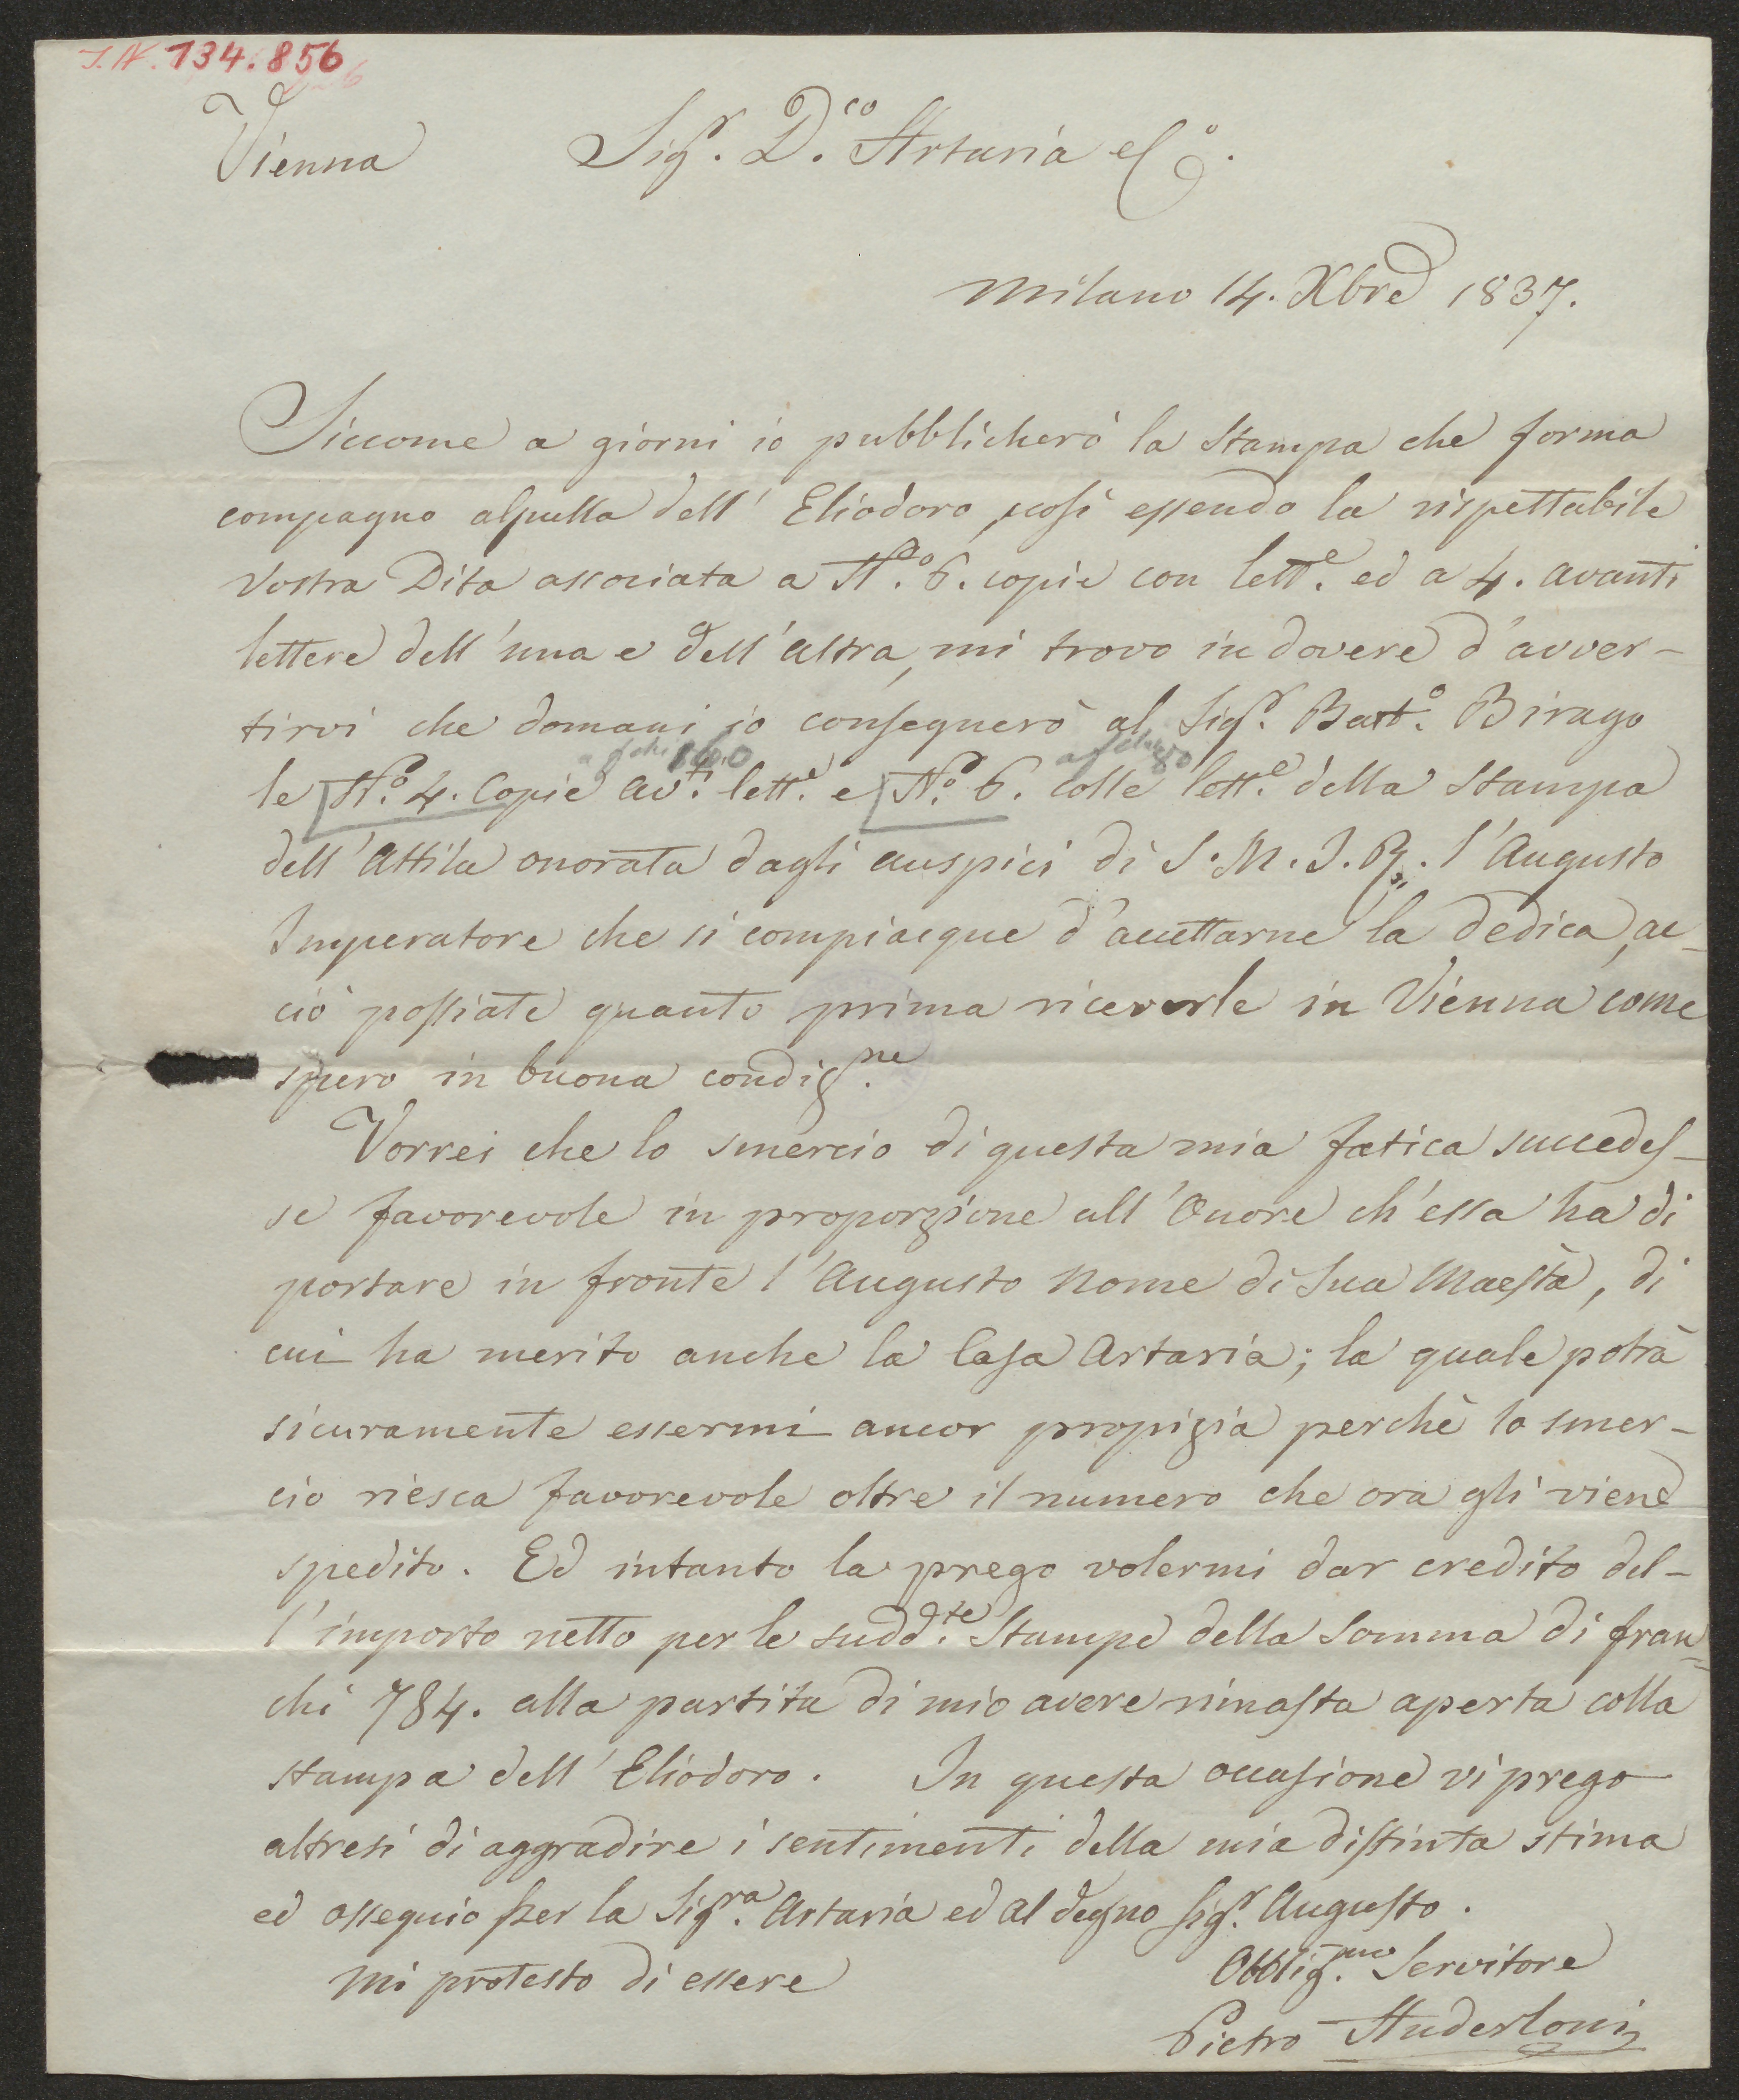 J.N. 134.856
Vienna Sigr. D.co Artaria e Co.
Milano 14. Xbre 1837.
Siccome a giorni io pubblicherò la stampa che forma
compagno a quella dell' Eliodoro, così essendo la rispettabile
vostra Dita associata a No. 6. copie con lette. ed a 4. avanti
lettere dell'una e dell'altra, mi trovo in dovere d'avver-
tirvi che domani io consegnerò al Sigr. Batto. Birago
160 80
le No. 4. Copie avti. lette. e No. 6. colle lette. della stampa
dell'Attila onorata dagli auspici di S.M.I.R. l'Augusto
Imperatore che si compiacque d'accettarne la dedica, ac-
ciò possiate quanto prima riceverle in Vienna come
spero in buona condizne.
Vorrei che lo smercio di questa mia fatica succedes-
se favorevole in proporzione all'Onore ch'essa ha di
portare in fronte l'Augusto Nome di Sua Maestà, di
cui ha merito anche la Casa Artaria; la quale potrà
sicuramente essermi ancor propizia perchè lo smer-
cio riesca favorevole oltre il numero che ora gli viene
spedito. Ed intanto la prego volermi dar credito del-
l'importo netto per le suddte. Stampe della somma di fran=
chi 784. alla partita di mio avere rimasta aperta colla
stampa dell'Eliodoro. In questa occasione vi prego
altresì di aggradire i sentimenti della mia distinta stima
ed ossequio per la Sigra. Artaria ed al degno sigr. Augusto.
Mi protesto di essere Obbligmo. Servitore
Pietro Anderloni